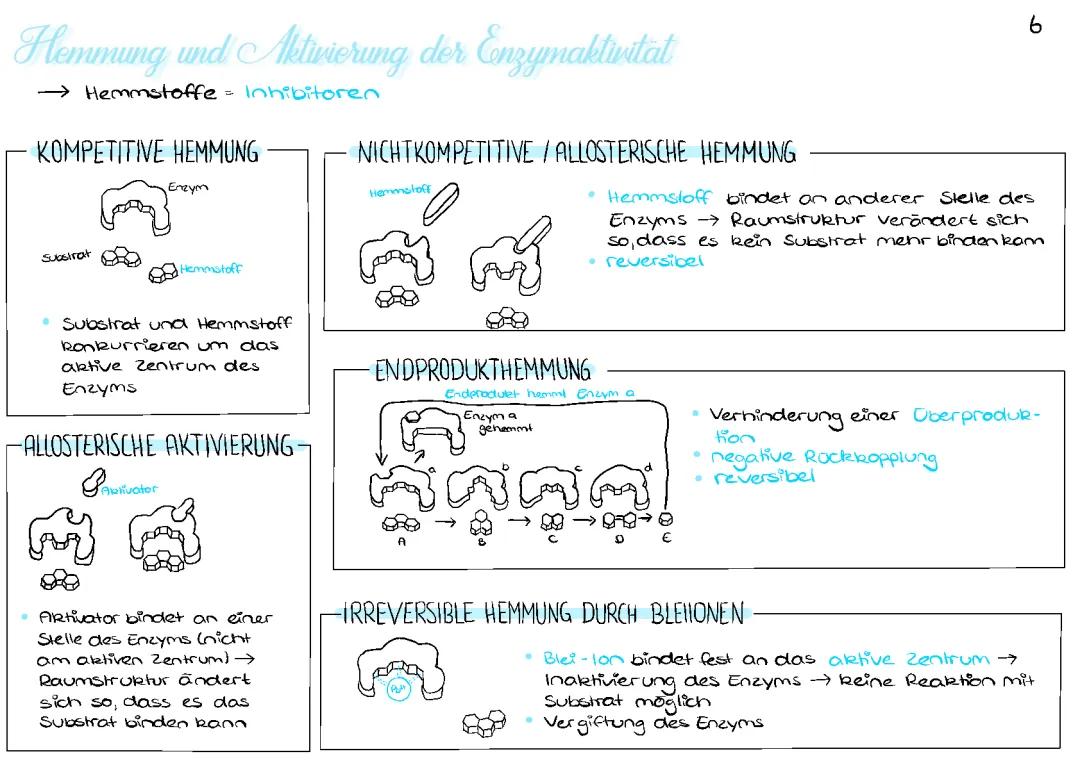 6
Hemmung und Aktivierung der Enzymaktivität
→ Hemmstoffe = Inhibitoren
KOMPETITIVE HEMMUNG
Enzym
Substrat
Hemmstoff
• Substrat und Hemmstoff
konkurrieren um das
aktive Zentrum des
Enzyms
NICHTKOMPETITIVE / ALLOSTERISCHE HEMMUNG
Hemmstoff
• Hemmstoff bindet an anderer Stelle des
Enzyms → Raumstruktur verändert sich
so, dass es kein Substrat mehr binden kann
• reversibel
ALLOSTERISCHE AKTIVIERUNG
Aktivator
• Aktivator bindet an einer
Stelle des Enzyms (nicht
am aktiven Zentrum) →
Raumstruktur ändert
sich so, dass es das
Substrat binden kann
ENDPRODUKTHEMMUNG
Endprodukt hemmt Enzym a
Enzym a
gehemmt
a b c d
A → B → C → D → E
• Verhinderung einer Überproduk-
tion
• negative Rückkopplung
• reversibel
IRREVERSIBLE HEMMUNG DURCH BLEIIONEN
Pb²⁺
• Blei-Ion bindet fest an das aktive Zentrum →
Inaktivierung des Enzyms → keine Reaktion mit
Substrat möglich
• Vergiftung des Enzyms